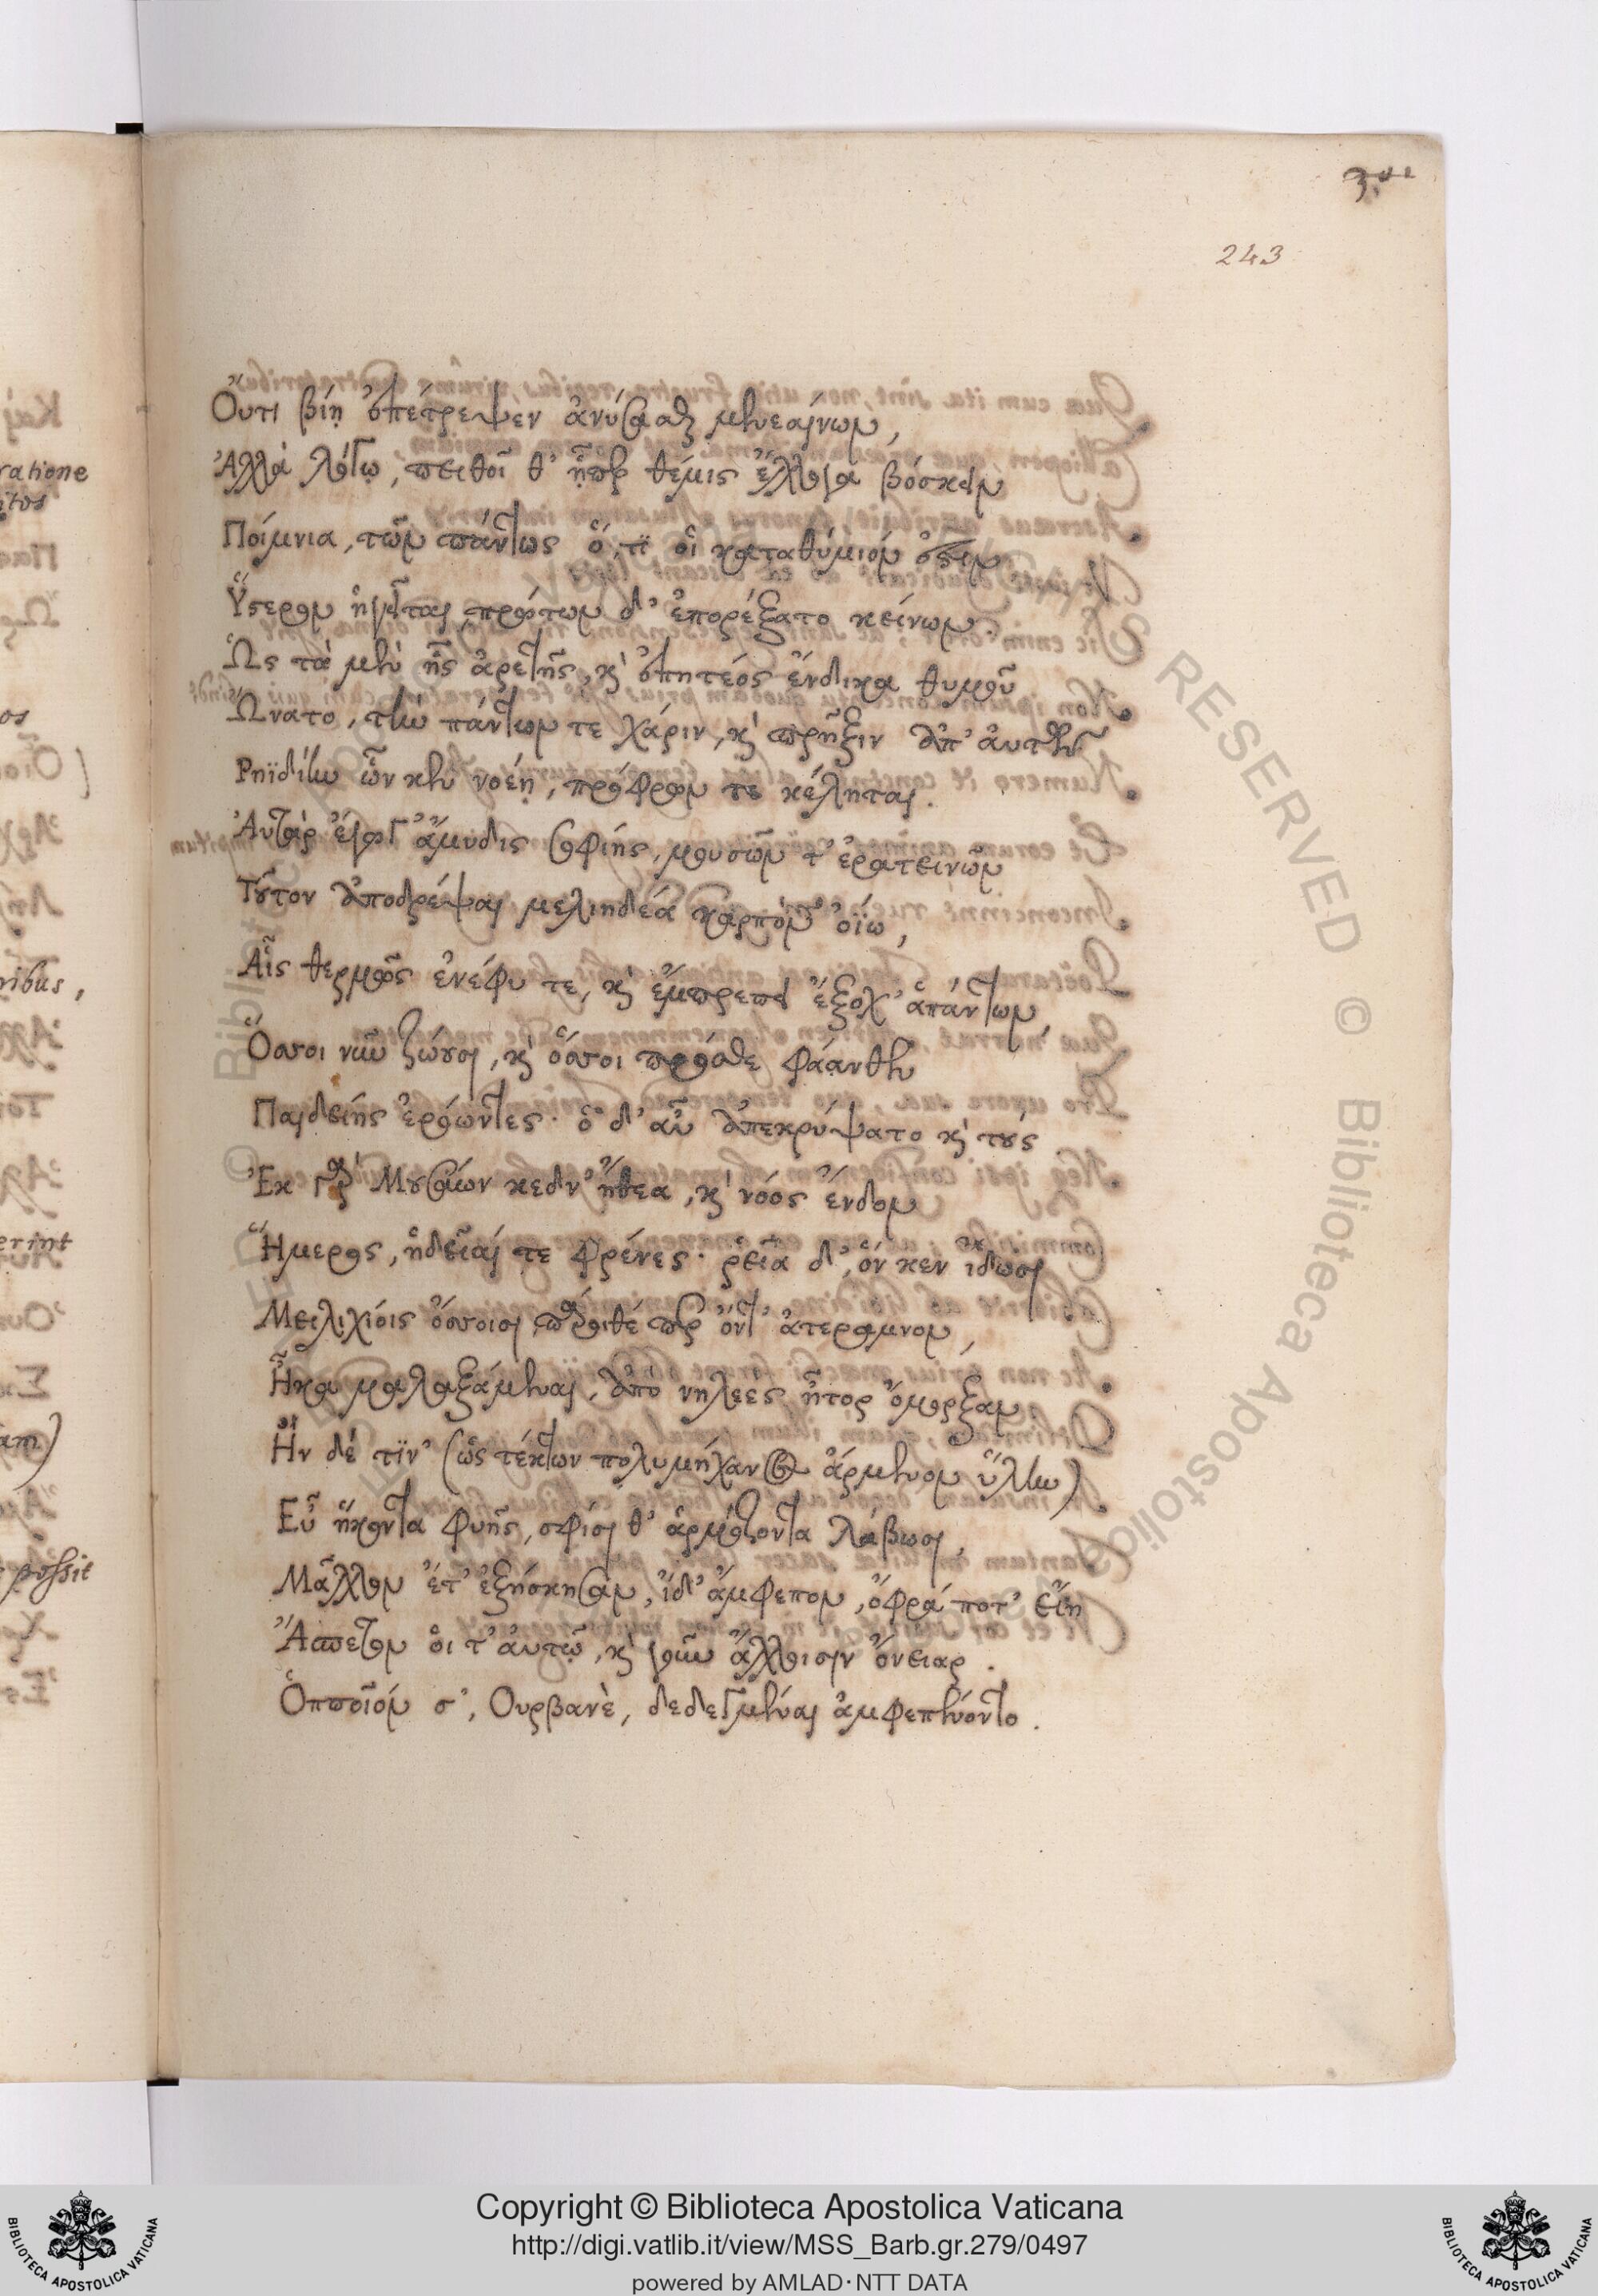 243
Οὔτι βίῃ ἐπέτρεψεν ἀνύσσαι μενεαίνων,
Ἀλλὰ λόγῳ, πειθοῖ θ' ᾗπερ θέμις ἔλλογα βόσκειν
Ποίμνια, τῶν πάντως ὅ,τι οἱ καταθύμιόν ἐστιν
Ὕστερον ἡγεῖται, πρώτων δ' ἐπορέξατο κείνων.
Ὣς τὰ μὲν ἧς ἀρετῆς, καὶ ἐπητέος ἔνδικα θυμοῦ
Ὤνατο, τὴν πάντων τε χάριν, καὶ πρῆξιν ἀπ' αὐτῶν
Ρηϊδίην ὧν κεν νοέῃ, πρόφρων τε κέληται.
Αὐτὰρ ἔγωγ' ἄμυδις σοφίης, μουσῶν τ' ἐρατεινῶν
Τοῦτον ἀποδρέψαι μελιηδέα καρπὸν ὀΐω,
Αἷς θερμὸς ἐνέφυ τε, καὶ ἔμπρεπε ἔξοχ' ἁπάντων,
Ὅσσοι νῦν ζώουσι, καὶ ὅσσοι πρόσθε φάανθεν
Παιδείης ἐρόωντες· ὁ δ' αὖ ἀπεκρύψατο καὶ τούς
Ἐκ γὰρ Μουσάων κεδν' ἤθεα, καὶ νόος ἔνδον
Ἥμερος, ἡδεῖαί τε φρένες· ῥεῖα δ', ὅν κεν ἴδωσι
Μειλιχίοις ὄσσοισι, πάροιθέ περ ὄντ' ἀτέραμνον,
Ἦκα μαλαξάμεναι, ἀπὸ νηλεὲς ἦτορ ὄμορξαν
Ἢν δέ τιν' (ὡς τέκτων πολυμήχανος ἄρμενον ὕλην)
Εὖ ἥκοντα φυῆς, σφίσι θ' ἁρμόζοντα λάβωσι,
Μᾶλλον ἔτ' ἐξήσκησαν, ἰδ' ἄμφεπον, ὄφρά ποτ' εἴη
Ἄσπετον οἱ τ' αὐτῷ, καὶ γοῦν ἄλλοισιν ὄνειαρ.
Ὁπποῖόν σ', Ουρβανὲ, δεδεγμέναι ἀμφεπένοντο.
ratione
nibus,
erint
possit
© Biblioteca Apostolica
RESERVED © Biblioteca Apostolica
BIBLIOTECA APOSTOLICA VATICANA
Copyright © Biblioteca Apostolica Vaticana
http://digi.vatlib.it/view/MSS_Barb.gr.279/0497
powered by AMLAD·NTT DATA
BIBLIOTECA APOSTOLICA VATICANA